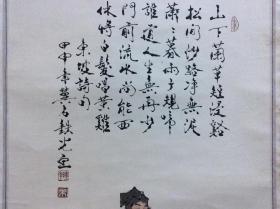 山下蘭芽短浸谿
松間沙路淨無泥
蕭蕭暮雨子規啼
誰道人生無再少
門前流水尚能西
休將白髮唱黃雞
東坡詩句
甲申